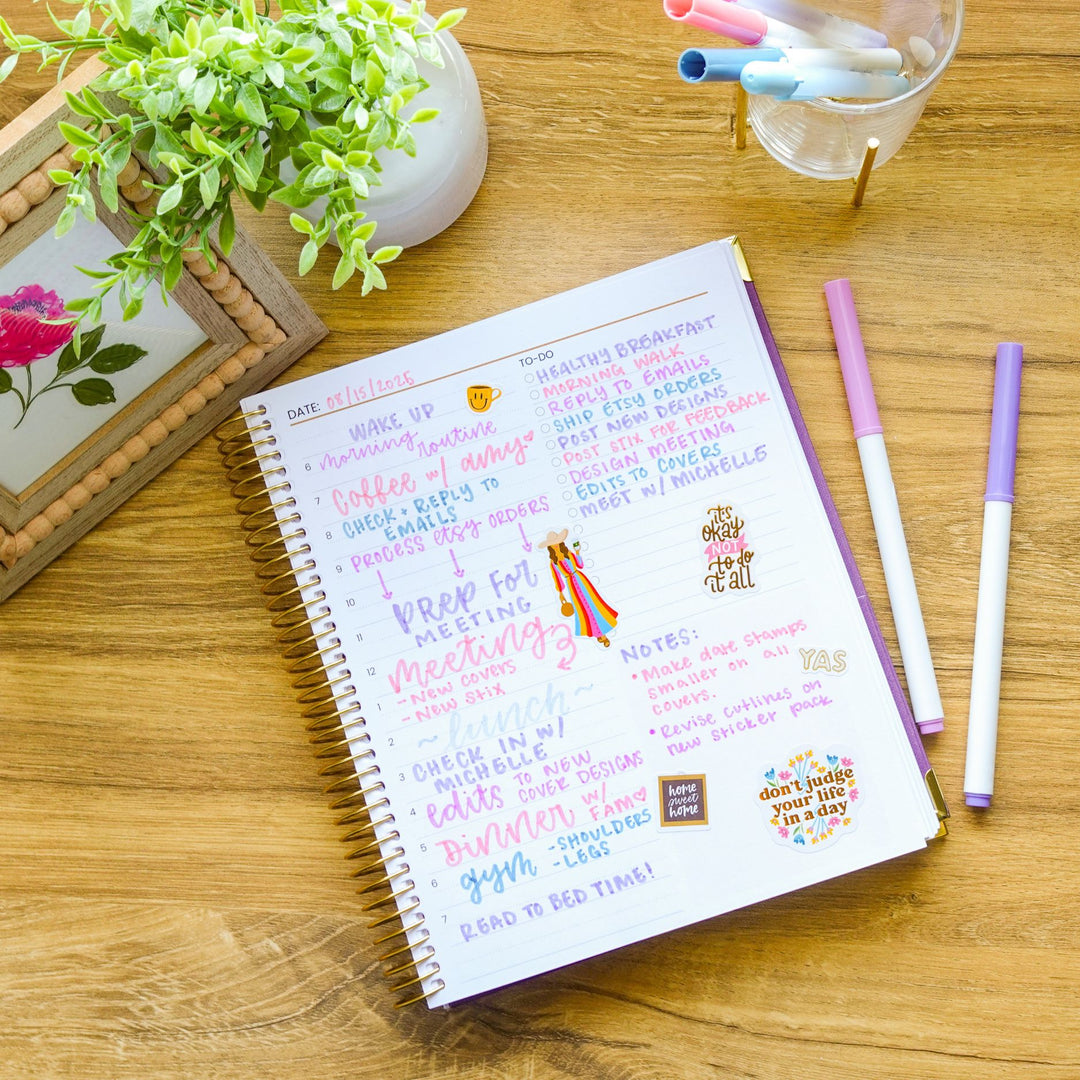 DATE: 08/15/2025
WAKE UP
6 morning routine
7 Coffee w/ amy
CHECK + REPLY TO
8 EMAILS
9 PROCESS etsy ORDERS
10 PREP FOR
11 MEETING
12 Meeting
- New covers
1 - New Stix
2 ~ lunch ~
CHECK IN w/
3 MICHELLE
4 edits TO NEW
COVER DESIGNS
5 DINNER w/
FAM
6 gym - SHOULDERS
- LEGS
7 READ TO BED TIME!
TO-DO
HEALTHY BREAKFAST
MORNING WALK
REPLY TO EMAILS
SHIP ETSY ORDERS
POST NEW DESIGNS
POST STIX FOR FEEDBACK
DESIGN MEETING
EDITS TO COVERS
MEET w/ MICHELLE
it's
okay
NOT
to do
it all
NOTES:
• Make date stamps
smaller on all
covers.
• Revise cutlines on
new sticker pack
YAS
home
sweet
home
don't judge
your life
in a day